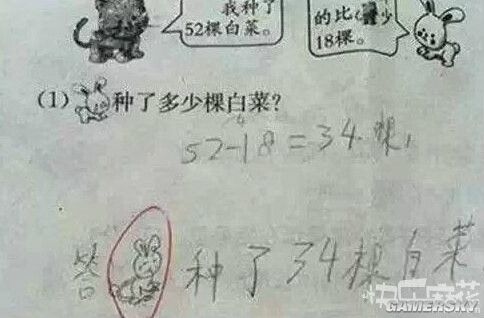 我种了
52棵白菜。
的比
少
18棵。
(1) 种了多少棵白菜?
52-18=34.棵,
答 种了34棵白菜
快乐麻花
GAMERSKY